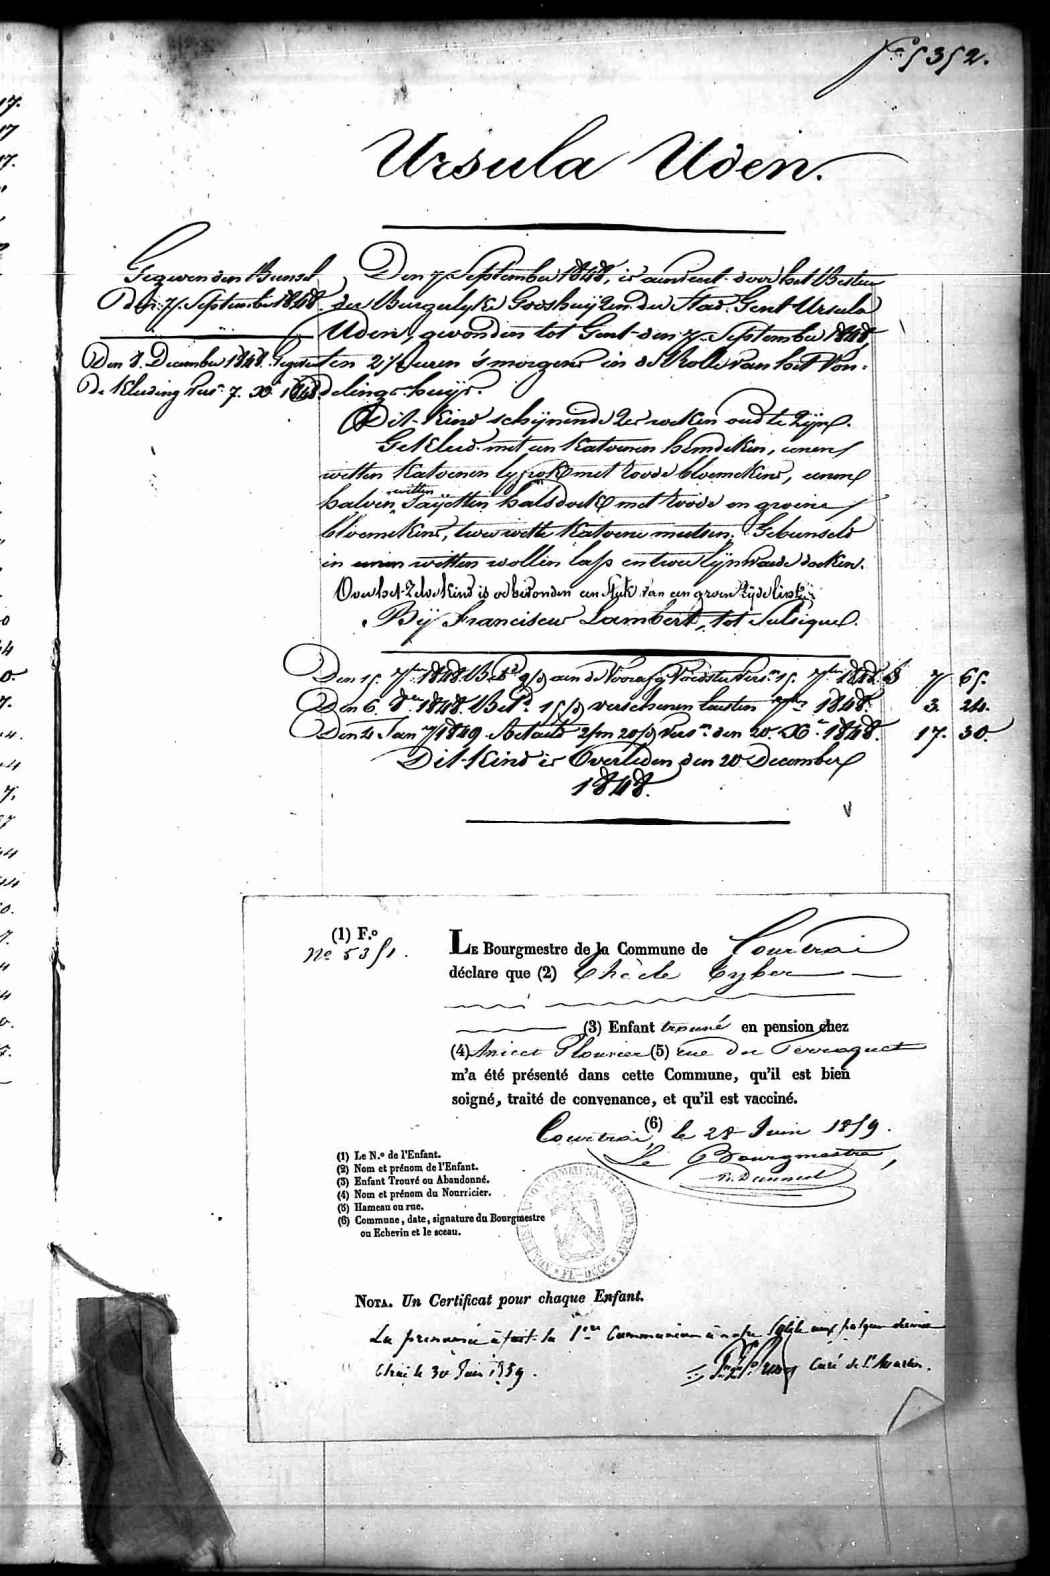 Fo 5352.
Ursula Uden.
Gegeven den Bunsel
Den 7. September 1848.
Den 8. December 1848. Gegeven
De Kleeding Vers.n 7. Xb. 1848
Den 7. September 1848, is aanveert door het Bestier
der Burgelyke Godshuijzen der Stad Gent Ursula
Uden, gevonden tot Gent den 7. September 1848,
ten 2 1/4 uren s'morgens in de Rolle van het Von-
delings-huijs.
Dit Kind schijnende 2 weken oud te Zijn.
Gekleed met een Katoenen hemdeken, eenen
witten Katoenen lyfrok met roode bloemekens, eenen
halven witten Saijetten halsdoek met roode en groene
bloemekens, twee witte Katoene mutsen. Gebunseld
in eenen witten wollen lap en twee lijnwaede doeken.
Over het Zelve Kind is er bevonden een stuk van een groen Zijde lintje
Bij Francisca Lambert, tot Sulsique.
Den 15. 7ber 1848. Bet.d 9/d aan de Voorafg. Voedster Vers.n 15. 7ber 1848. f 7 65.
Den 6. 8ber 1848. Bet.d 15/d verschenen laesten 7ber 1848. 3. 24.
Den 4. Jan.ry 1849. Betaald 2/m 20/d Vers.n den 20. Xb 1848. 17. 30.
Dit Kind is Overleden den 20 December
1848.
(1) F.o
No 5351.
LE Bourgmestre de la Commune de Courtrai
déclare que (2) Thècle Tyber
(3) Enfant trouvé en pension chez
(4) Anicet Plouvier (5) rue du Perroquet
m'a été présenté dans cette Commune, qu'il est bien
soigné, traité de convenance, et qu'il est vacciné.
(6)
Courtrai, le 28 Juin 1859.
Le Bourgmestre,
(1) Le N.o de l'Enfant.
(2) Nom et prénom de l'Enfant.
(3) Enfant Trouvé ou Abandonné.
(4) Nom et prénom du Nourricier.
(5) Hameau ou rue.
(6) Commune, date, signature du Bourgmestre
ou Echevin et le sceau.
NOTA. Un Certificat pour chaque Enfant.
La prénommée a fait sa 1ère Communion à notre Eglise aux pâques dernière
Ctrai le 30 Juin 1859.
Curé de St Martin.